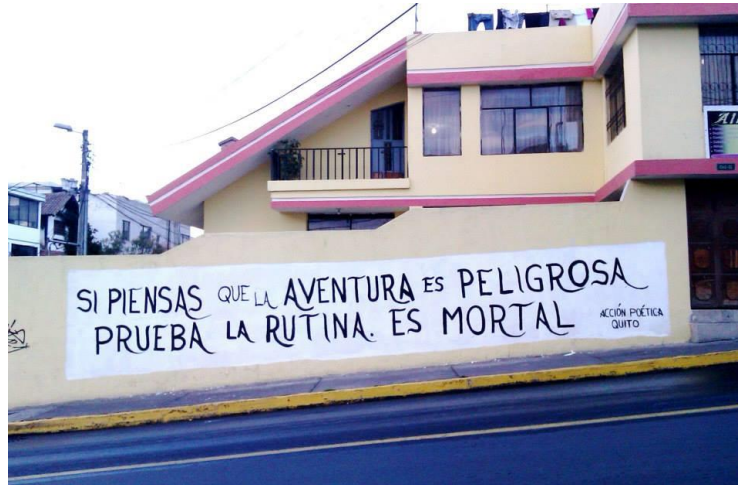 SI PIENSAS QUE LA AVENTURA ES PELIGROSA
PRUEBA LA RUTINA. ES MORTAL
ACCIÓN POÉTICA
QUITO